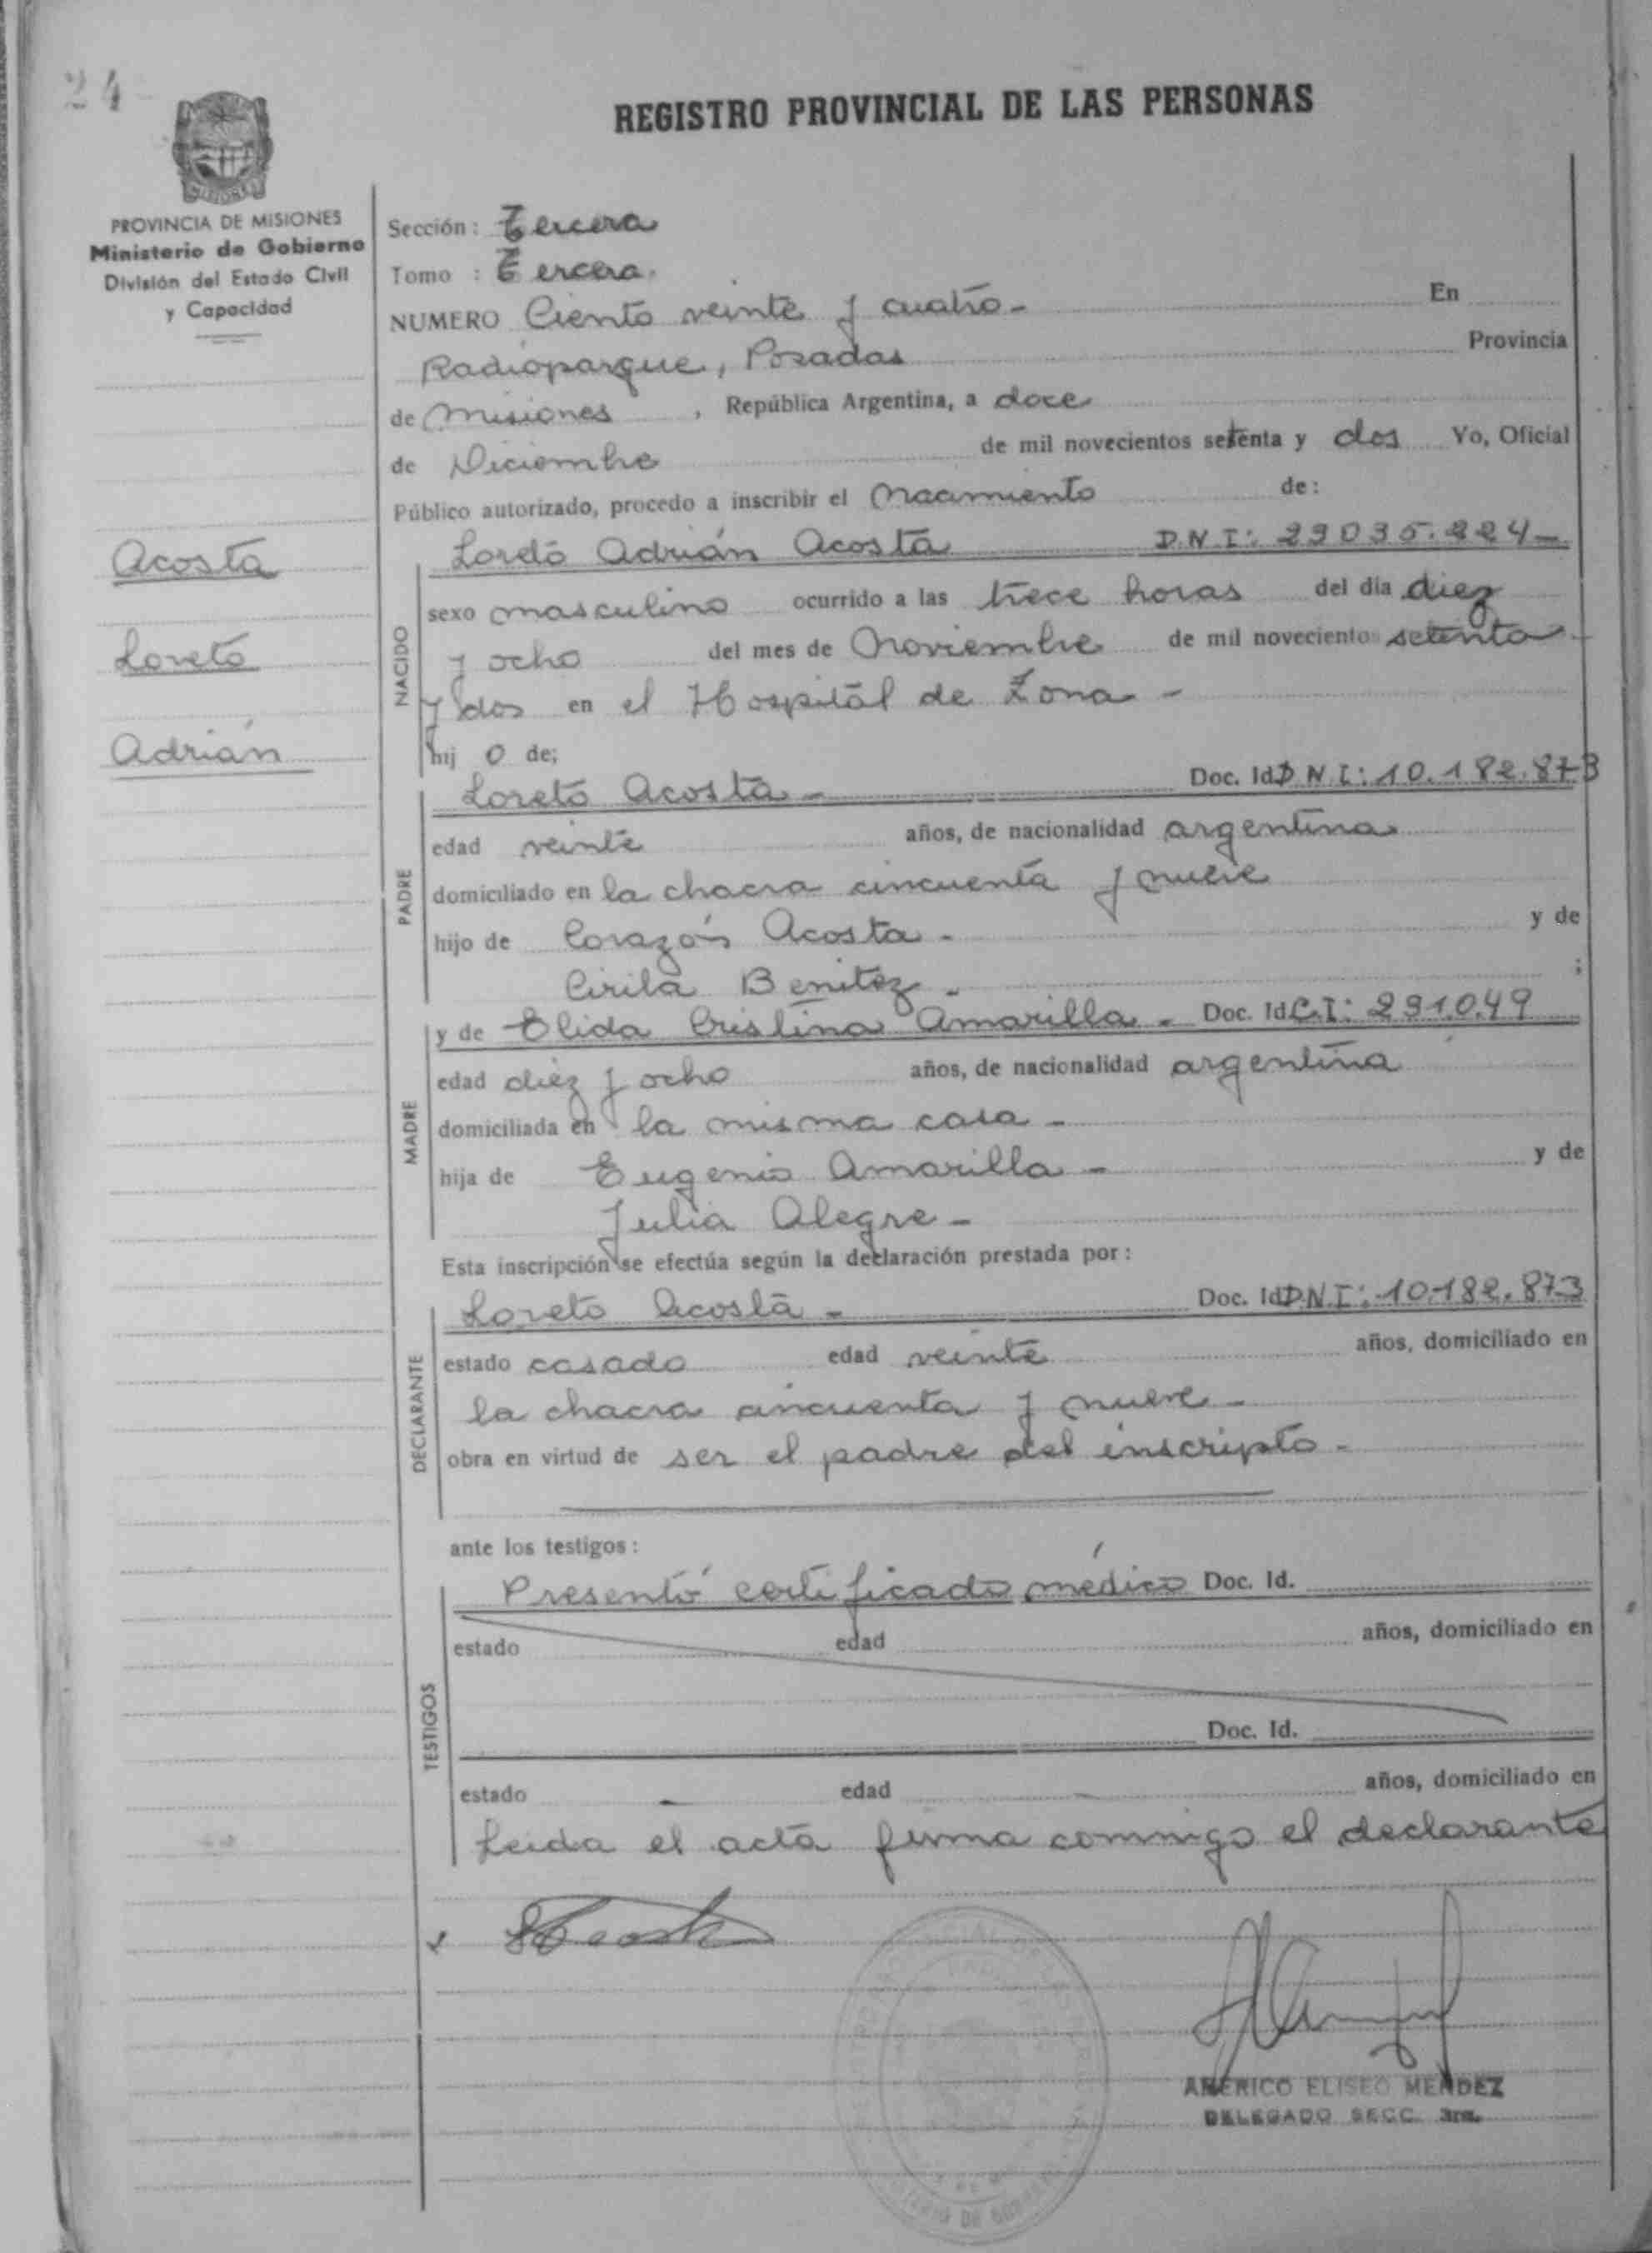 24
REGISTRO PROVINCIAL DE LAS PERSONAS
PROVINCIA DE MISIONES
Ministerio de Gobierno
División del Estado Civil
y Capacidad
Sección: Tercera
Tomo : Tercera.
NUMERO Ciento veinte y cuatro - En
Radioparque, Posadas Provincia
de Misiones , República Argentina, a doce
de Diciembre de mil novecientos setenta y dos Yo, Oficial
Público autorizado, procedo a inscribir el Nacimiento de:
Acosta
Loreto
Adrián
NACIDO
Loreto Adrián Acosta D.N.I:
sexo masculino ocurrido a las trece horas del día diez
y ocho del mes de Noviembre de mil novecientos setenta
y dos en el Hospital de Zona -
hij o de;
PADRE
Loreto Acosta - Doc. Id D.N.I: 10.182.873
edad veinte años, de nacionalidad argentina
domiciliado en la chacra cincuenta y nueve
hijo de Corazón Acosta - y de
Cirila Benitez - ;
MADRE
y de Elida Cristina Amarilla - Doc. Id C.I: 291.049
edad diez y ocho años, de nacionalidad argentina
domiciliada en la misma casa -
hija de Eugenio Amarilla - y de
Julia Alegre -
Esta inscripción se efectúa según la declaración prestada por:
DECLARANTE
Loreto Acosta - Doc. Id D.N.I: 10.182.873
estado casado edad veinte años, domiciliado en
la chacra cincuenta y nueve -
obra en virtud de ser el padre del inscripto -
ante los testigos:
TESTIGOS
Presentó certificado médico Doc. Id.
estado edad años, domiciliado en
Doc. Id.
estado - edad - años, domiciliado en
Leida el acta firma conmigo el declarante
AMERICO ELISEO MENDEZ
DELEGADO SECC. 3ra.